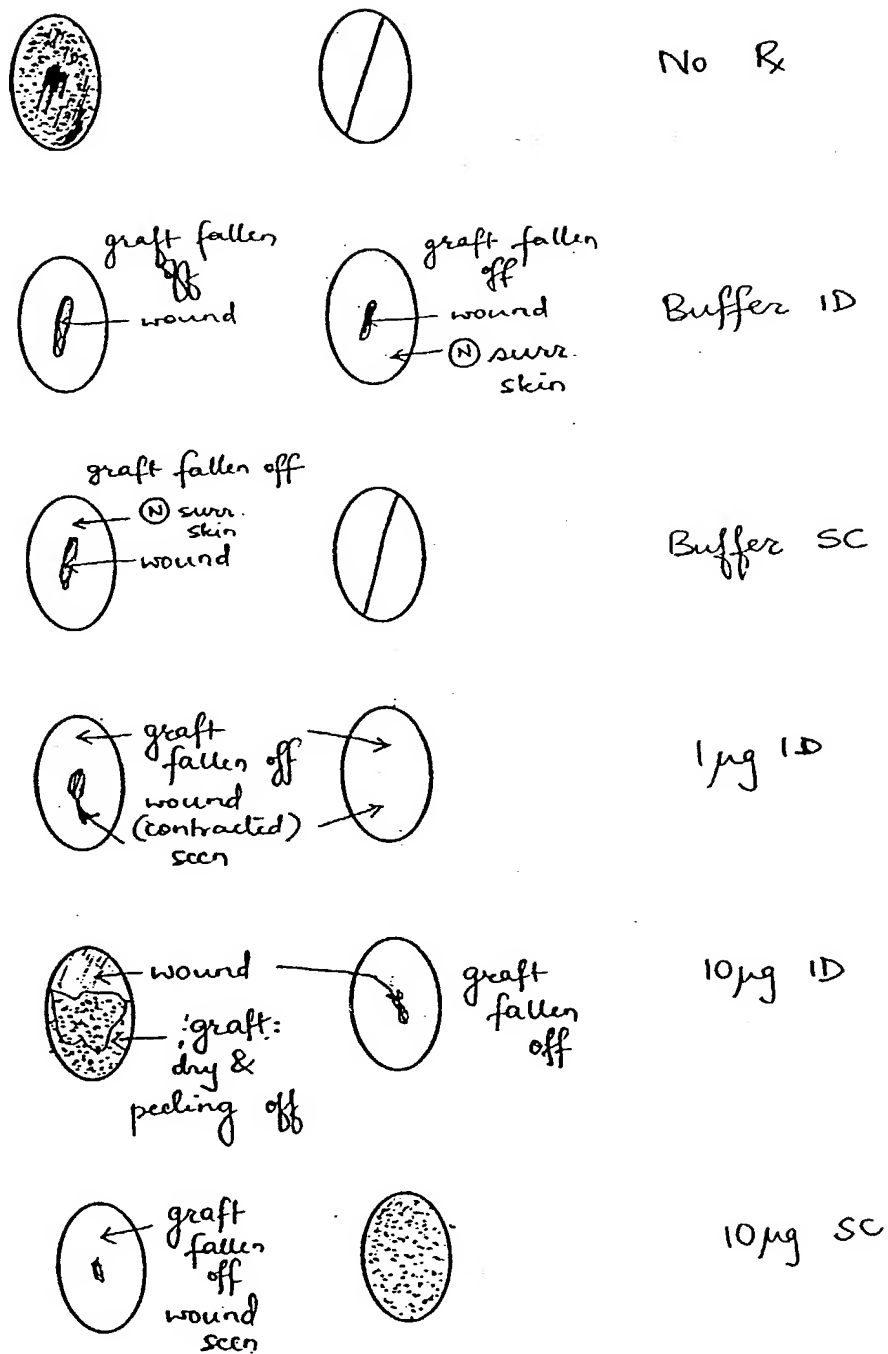 No Rx
graft fallen
off
wound
graft fallen
off
wound
N surr.
skin
Buffer ID
graft fallen off
N surr.
skin
wound
Buffer SC
graft
fallen off
wound
(contracted)
seen
1 µg ID
wound
graft:
dry &
peeling off
graft
fallen
off
10 µg ID
graft
fallen
off
wound
seen
10 µg SC